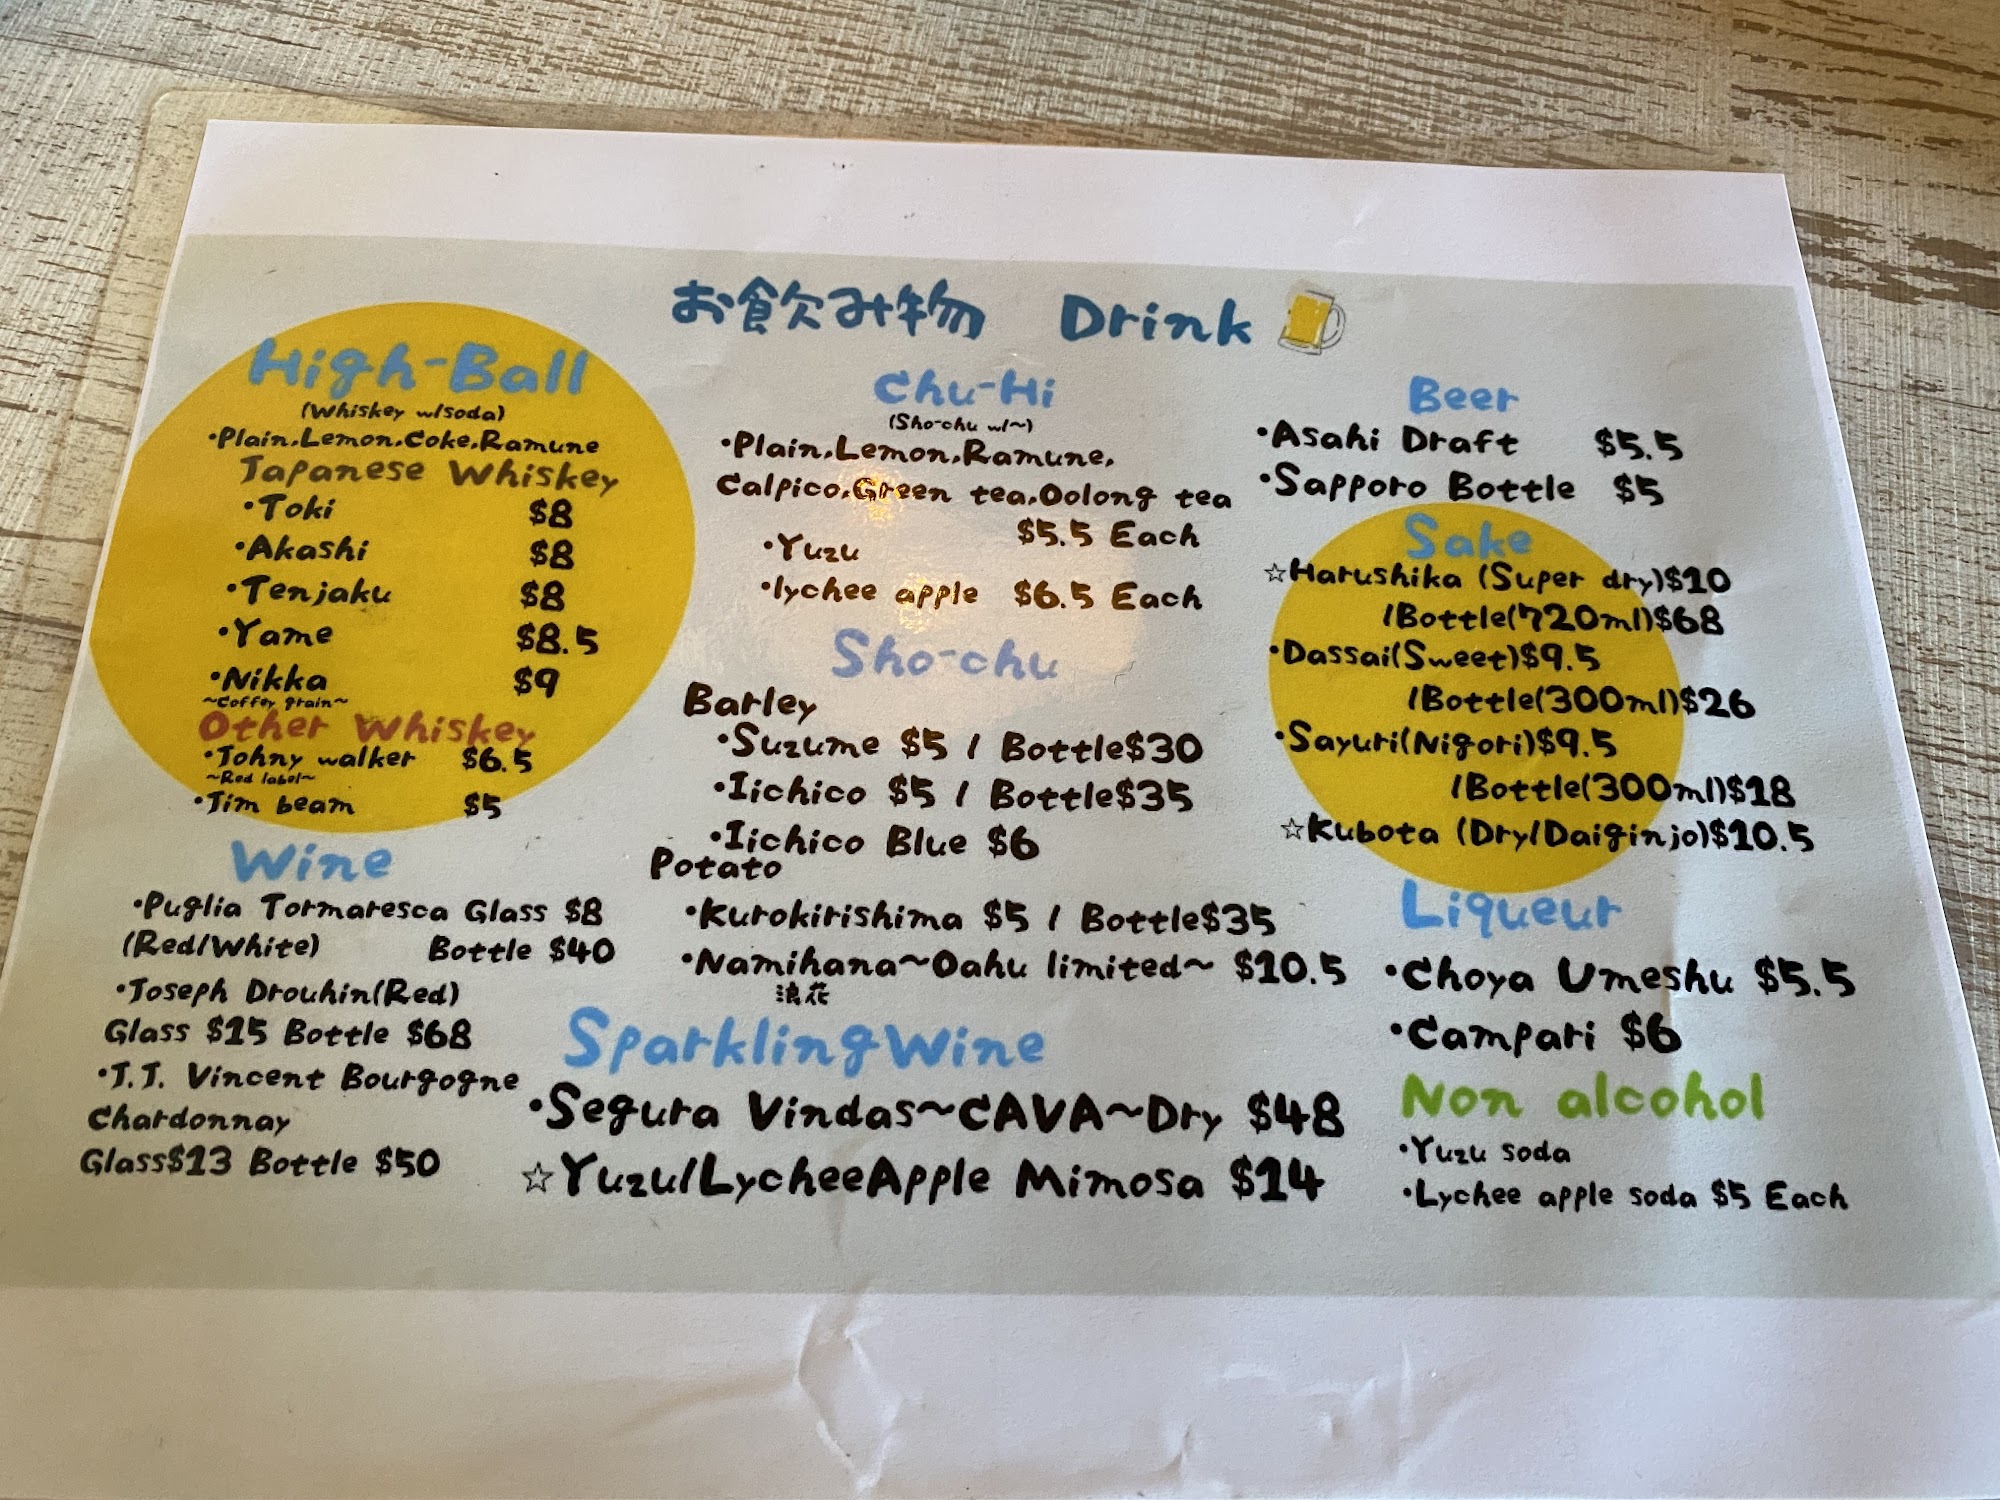 お飲み物 Drink
High-Ball
(Whiskey w/soda)
・Plain,Lemon,Coke,Ramune
Japanese Whiskey
・Toki $8
・Akashi $8
・Tenjaku $8
・Yame $8.5
・Nikka $9
~Coffey grain~
Other Whiskey
・Johny walker $6.5
~Red label~
・Jim beam $5
Wine
・Puglia Tormaresca Glass $8
(Red/White) Bottle $40
・Joseph Drouhin(Red)
Glass $15 Bottle $68
・J.J. Vincent Bourgogne
Chardonnay
Glass$13 Bottle $50
Chu-Hi
(Sho-chu w/~)
・Plain,Lemon,Ramune,
Calpico,Green tea,Oolong tea
$5.5 Each
・Yuzu
・lychee apple $6.5 Each
Sho-chu
Barley
・Suzume $5 / Bottle$30
・Iichico $5 / Bottle$35
・Iichico Blue $6
Potato
・Kurokirishima $5 / Bottle$35
・Namihana~Oahu limited~ $10.5
浪花
Sparkling Wine
・Segura Vindas~CAVA~Dry $48
☆Yuzu/LycheeApple Mimosa $14
Beer
・Asahi Draft $5.5
・Sapporo Bottle $5
Sake
☆Harushika (Super dry)$10
/Bottle(720ml)$68
・Dassai(Sweet)$9.5
/Bottle(300ml)$26
・Sayuri(Nigori)$9.5
/Bottle(300ml)$18
☆Kubota (Dry/Daiginjo)$10.5
Liqueur
・Choya Umeshu $5.5
・Campari $6
Non alcohol
・Yuzu soda
・Lychee apple soda $5 Each